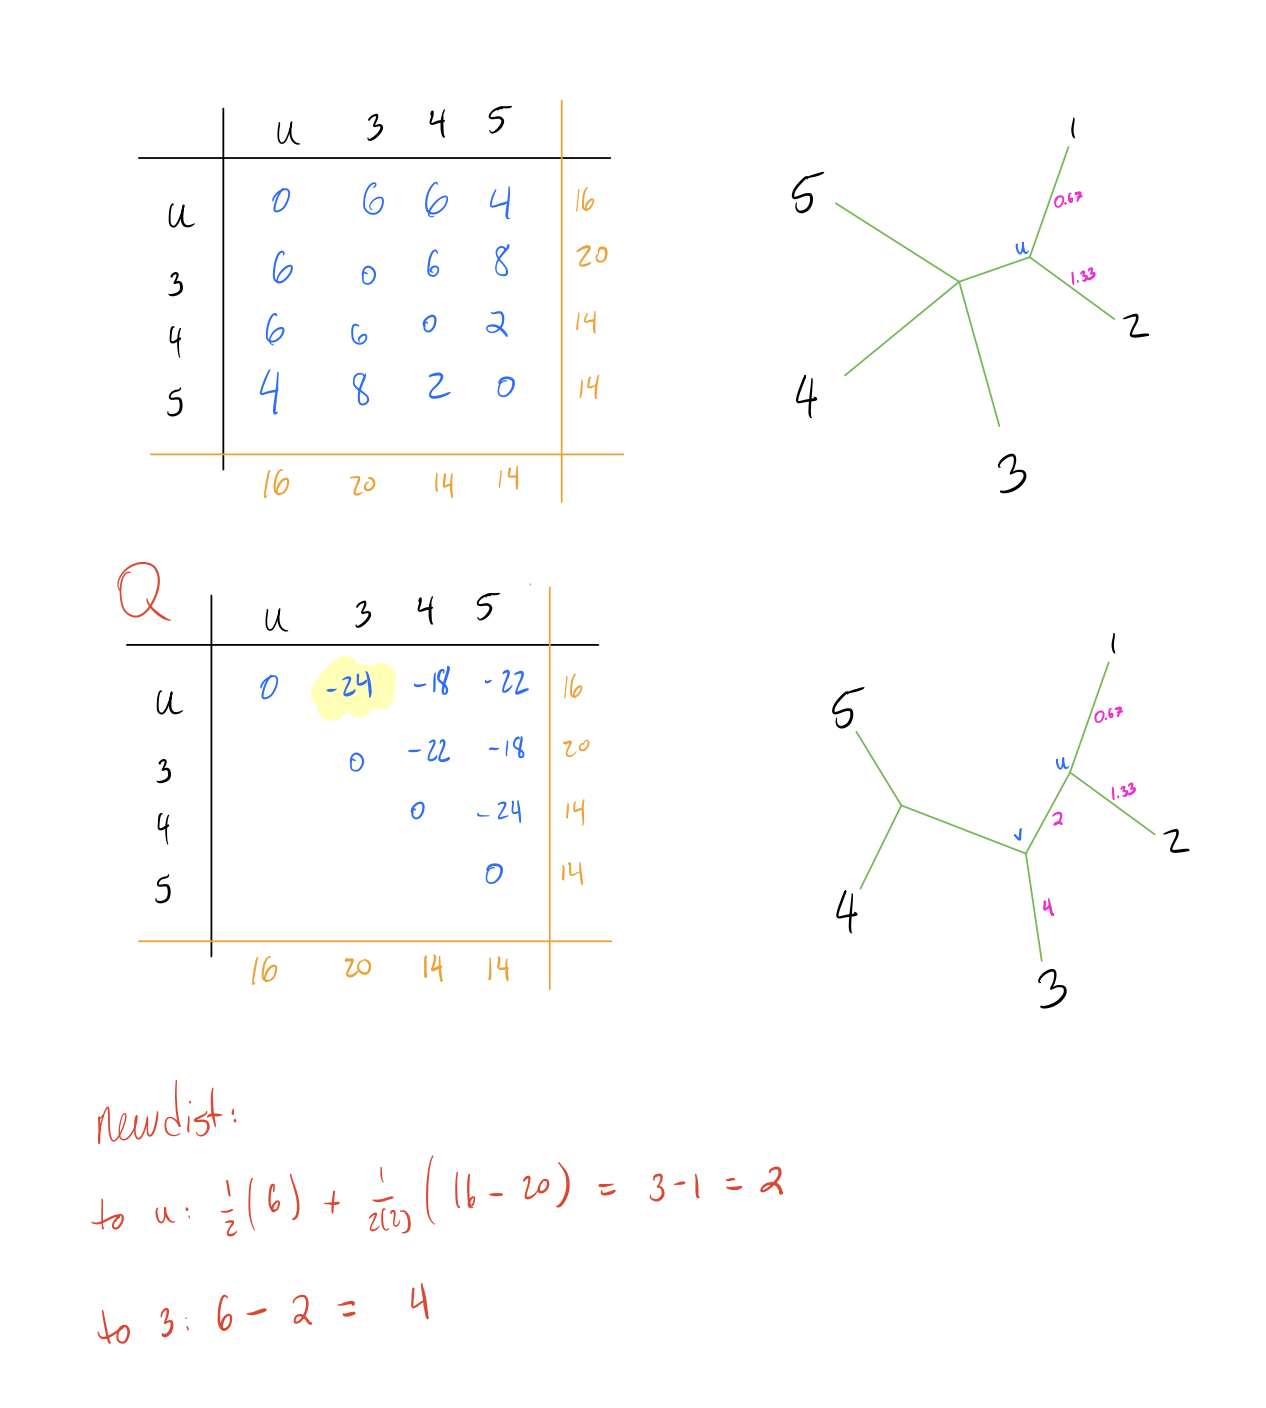 u 3 4 5
u 0 6 6 4 16
3 6 0 6 8 20
4 6 6 0 2 14
5 4 8 2 0 14
16 20 14 14
1
5
0.67
u
1.33
2
4
3
Q
u 3 4 5
u 0 -24 -18 -22 16
3 0 -22 -18 20
4 0 -24 14
5 0 14
16 20 14 14
1
5
0.67
u
1.33
2
v
2
4
4
3
new dist:
to u: 1/2 (6) + 1/2(2) (16 - 20) = 3 - 1 = 2
to 3: 6 - 2 = 4